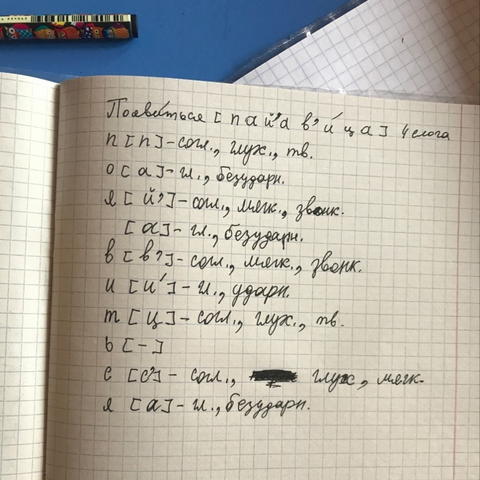 Появиться [пай'ав'и́ца] 4 слога
п [п] - согл., глух., тв.
о [а] - гл., безударн.
я [й'] - согл., мягк., звонк.
[а] - гл., безударн.
в [в'] - согл., мягк., звонк.
и [и́] - гл., ударн.
т [ц] - согл., глух., тв.
ь [-]
с [с'] - согл., глух, мягк.
я [а] - гл., безударн.